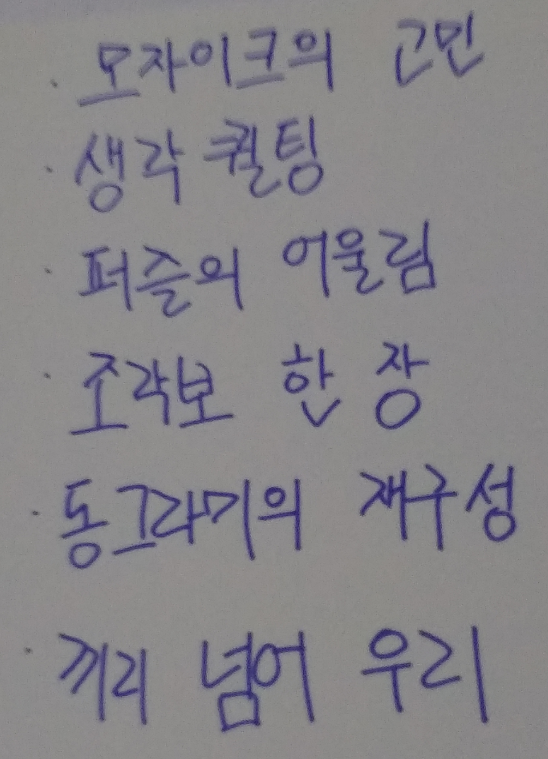 · 모자이크의 고민
· 생각 퀼팅
· 퍼즐의 어울림
· 조각보 한 장
· 동그라미의 재구성
· 끼리 넘어 우리